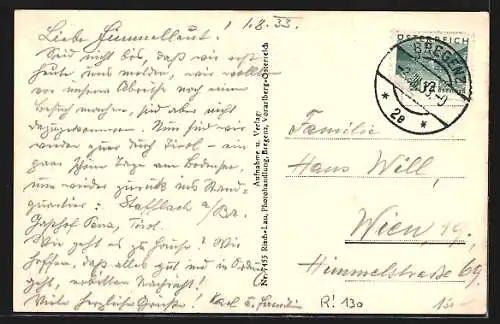 1.8.33.
Liebe Himmellaut.
Seid nicht bös, daß wir erst
heute uns melden, wir wollten
vor unserer Abreise noch einen
Besuch machen, sind aber nicht
dazugekommen. Nun sind wir
wieder quer durch Tirol - ein
paar schöne Tage am Bodensee,
nun wieder zurück ins Stand-
quartier: Stafflach a/Br.
Gasthof Pena, Tirol.
Wie geht es zu Hause? Wir
hoffen, daß alles gut und in Ordnung
geht, erbitten Nachricht!
Viele herzliche Grüße! Karl u. Familie
Nr. 7455 Risch-Lau, Photohandlung, Bregenz, Vorarlberg-Österreich
Aufnahme u. Verlag:
ÖSTERREICH
BREGENZ
* 2e *
Familie
Hans Will,
Wien, 19.,
Himmelstraße 69.
R! 130